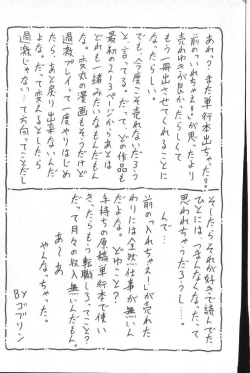 あれっ、また単行本出ちゃった?
前の「いれちゃえ!」が思ったより
売れゆきが良かったらしくて
もう一冊出させてくれることに
なったらしい。
でも、今度こそ売れないだろう
と言ってる。だって、どの作品も
最初の2、3ページからあとは
どれも一緒みたいなもんだもん
な。変丸の漫画もそうだけど
過激プレイって一度やりはじめ
たら、あと戻り出来ないんだ
よな。だって変えるとしたら
過激じゃないって方向ってことだし
そしたらそれが好きで読んでた
ひとには「つまんなくなった」って
思われちゃうだろうし……。
んで…
前の「入れちゃえー!」が売れた
わりには全然仕事が無いん
だよな。どゆこと?
手持ちの原稿単行本で使い
きったらもう転職しろってこと?
だって月々の収入無いんだもん。
あ〜あ
やんなっちゃった。
BYゴブリン